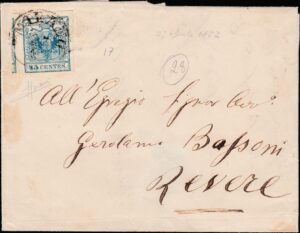 MILANO
45 CENTES
17
28
All'Egregio Signor Avv.
Gerolamo Bassoni
Revere